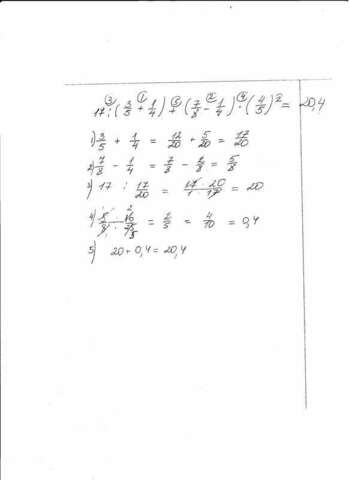 17 : (3/5 + 1/4) + (7/8 - 1/4) · (4/5)² = 20,4
1) 3/5 + 1/4 = 12/20 + 5/20 = 17/20
2) 7/8 - 1/4 = 7/8 - 2/8 = 5/8
3) 17 : 17/20 = 17 · 20 / 1 · 17 = 20
= 2/5 = 4/10 = 0,4
5) 20 + 0,4 = 20,4